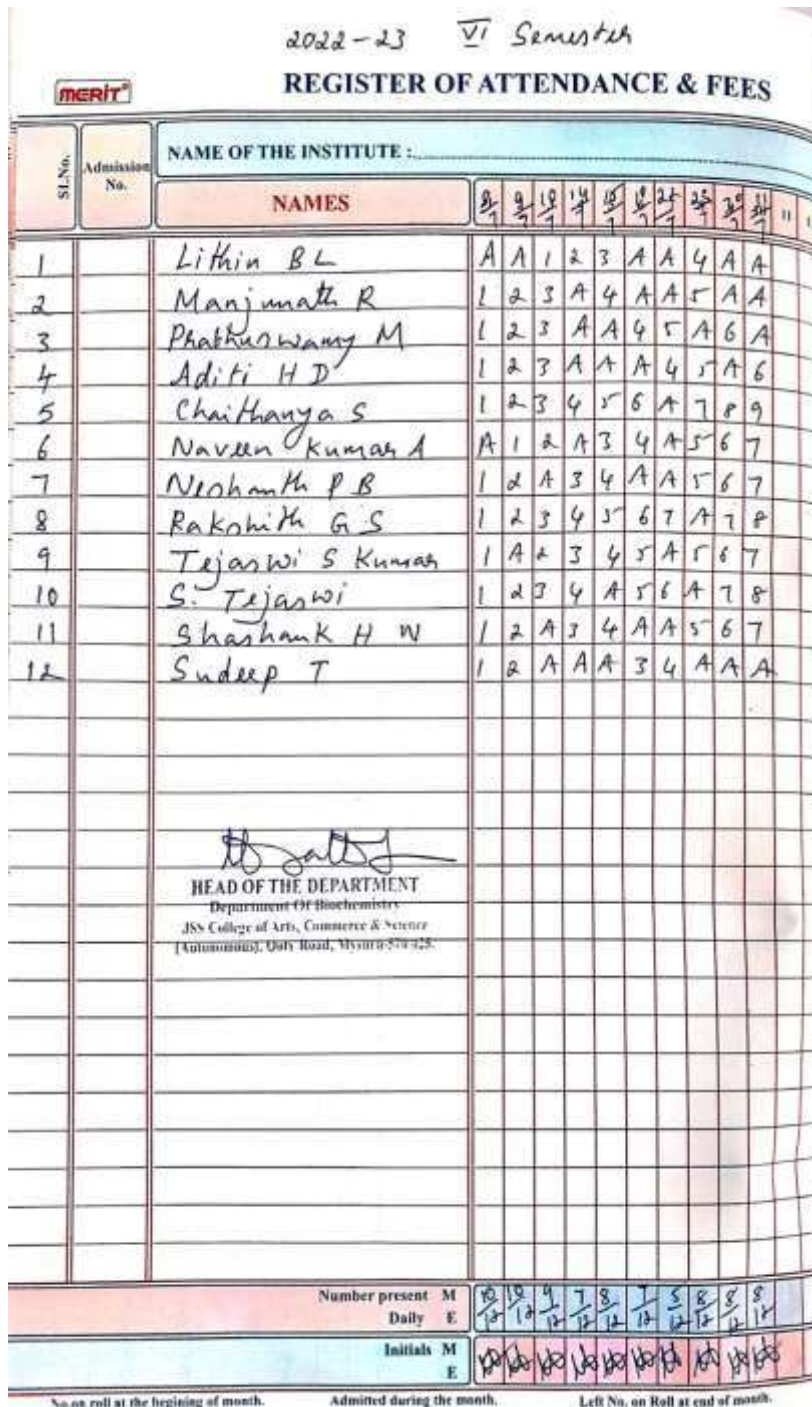 2022-23 VI Semester
MERIT®
REGISTER OF ATTENDANCE & FEES
Sl.No. Admission No. NAME OF THE INSTITUTE :
NAMES 8/7 9/7 10/7 14/7 15/7 25/7 31/7 11
1 Lithin B L A A 1 2 3 A A 4 A A
2 Manjunath R 1 2 3 A 4 A A 5 A A
3 Prabhuswamy M 1 2 3 A A 4 5 A 6 A
4 Aditi H D 1 2 3 A A A 4 5 A 6
5 Chaithanya S 1 2 3 4 5 6 A 7 8 9
6 Naveen Kumar A A 1 2 A 3 4 A 5 6 7
7 Nishanth P B 1 2 A 3 4 A A 5 6 7
8 Rakshith G S 1 2 3 4 5 6 7 A 7 8
9 Tejaswi S Kumar 1 A 2 3 4 5 A 5 6 7
10 S. Tejaswi 1 2 3 4 A 5 6 A 7 8
11 Shashank H N 1 2 A 3 4 A A 5 6 7
12 Sudeep T 1 2 A A A 3 4 A A A
HEAD OF THE DEPARTMENT
Department Of Biochemistry
JSS College of Arts, Commerce & Science
(Autonomous), Ooty Road, Mysuru-570 025.
Number present M 10/12 10/12 9/12 7/12 8/12 7/12 5/12 8/12 8/12 8/12
Daily E
Initials M
E
No.on roll at the begining of month. Admitted during the month. Left No. on Roll at end of month.